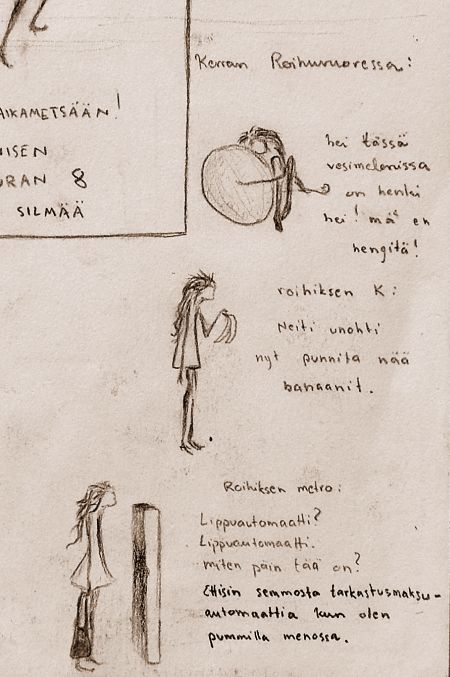 AIKAMETSÄÄN!
ISEN
URAN 8
SILMÄÄ
Kerran Roihuvuoressa:
hei tässä
vesimelonissa
on henki
hei! mä en
hengitä!
roihiksen K:
Neiti unohti
nyt punnita nää
banaanit.
Roihiksen metro:
Lippuautomaatti?
Lippuautomaatti.
miten päin tää on?
Ettisin semmosta tarkastusmaksu-
automaattia kun olen
pummilla menossa.